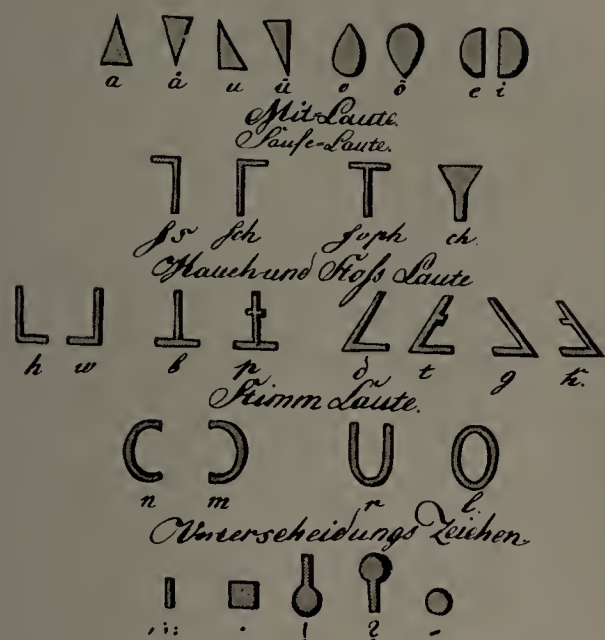 a å u ü o ö e i
Mit-Laute.
Sause-Laute.
ſs ſch f v ph ch.
Hauch und Stoß Laute
h w b p d t g k.
Stimm Laute.
n m r l.
Unterscheidungs Zeichen.
, ; : . ! ? -